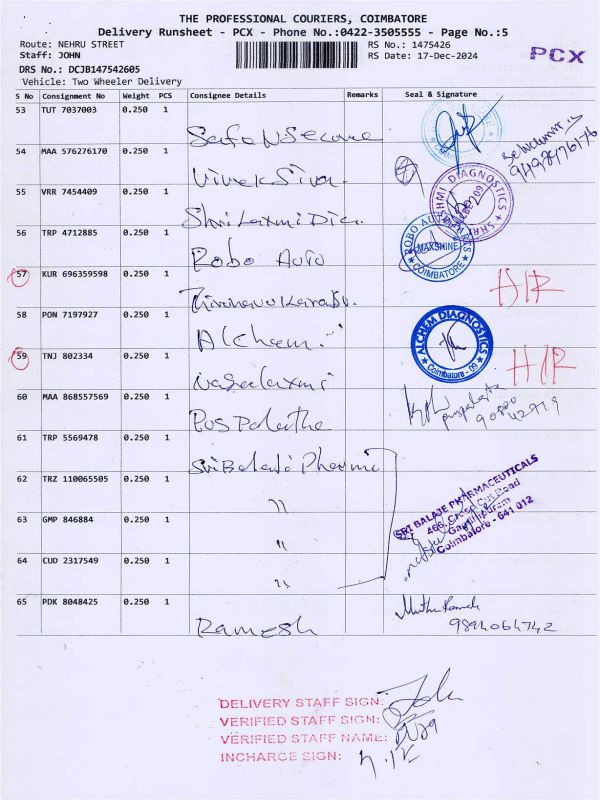 THE PROFESSIONAL COURIERS, COIMBATORE
Delivery Runsheet - PCX - Phone No.:0422-3505555 - Page No.:5
Route: NEHRU STREET RS No.: 1475426
Staff: JOHN RS Date: 17-Dec-2024 PCX
DRS No.: DCJB147542605
Vehicle: Two Wheeler Delivery
S No Consignment No Weight PCS Consignee Details Remarks Seal & Signature
53 TUT 7037003 0.250 1
Safe N Secure
54 MAA 576276170 0.250 1
Vivek Siva.
55 VRR 7454409 0.250 1
SHRI LAXMI DIAGNOSTICS
Shri Laxmi Dia.
56 TRP 4712885 0.250 1
Robo Auto
MAXSHINE
COIMBATORE
57 KUR 696359598 0.250 1 HIR
58 PON 7197927 0.250 1
Alchem
ALCHEM DIAGNOSTICS
Coimbatore - 09
59 TNJ 802334 0.250 1 HIR
60 MAA 868557569 0.250 1
Puspalatha
61 TRP 5569478 0.250 1
Sri Balaji Pharmi
62 TRZ 110065505 0.250 1
"
SRI BALAJE PHARMACEUTICALS
Coimbatore - 641 012
63 GMP 846884 0.250 1
"
64 CUD 2317549 0.250 1
"
65 PDK 8048425 0.250 1
Ramesh
9894064742
DELIVERY STAFF SIGN: John
VERIFIED STAFF SIGN:
VERIFIED STAFF NAME:
INCHARGE SIGN: